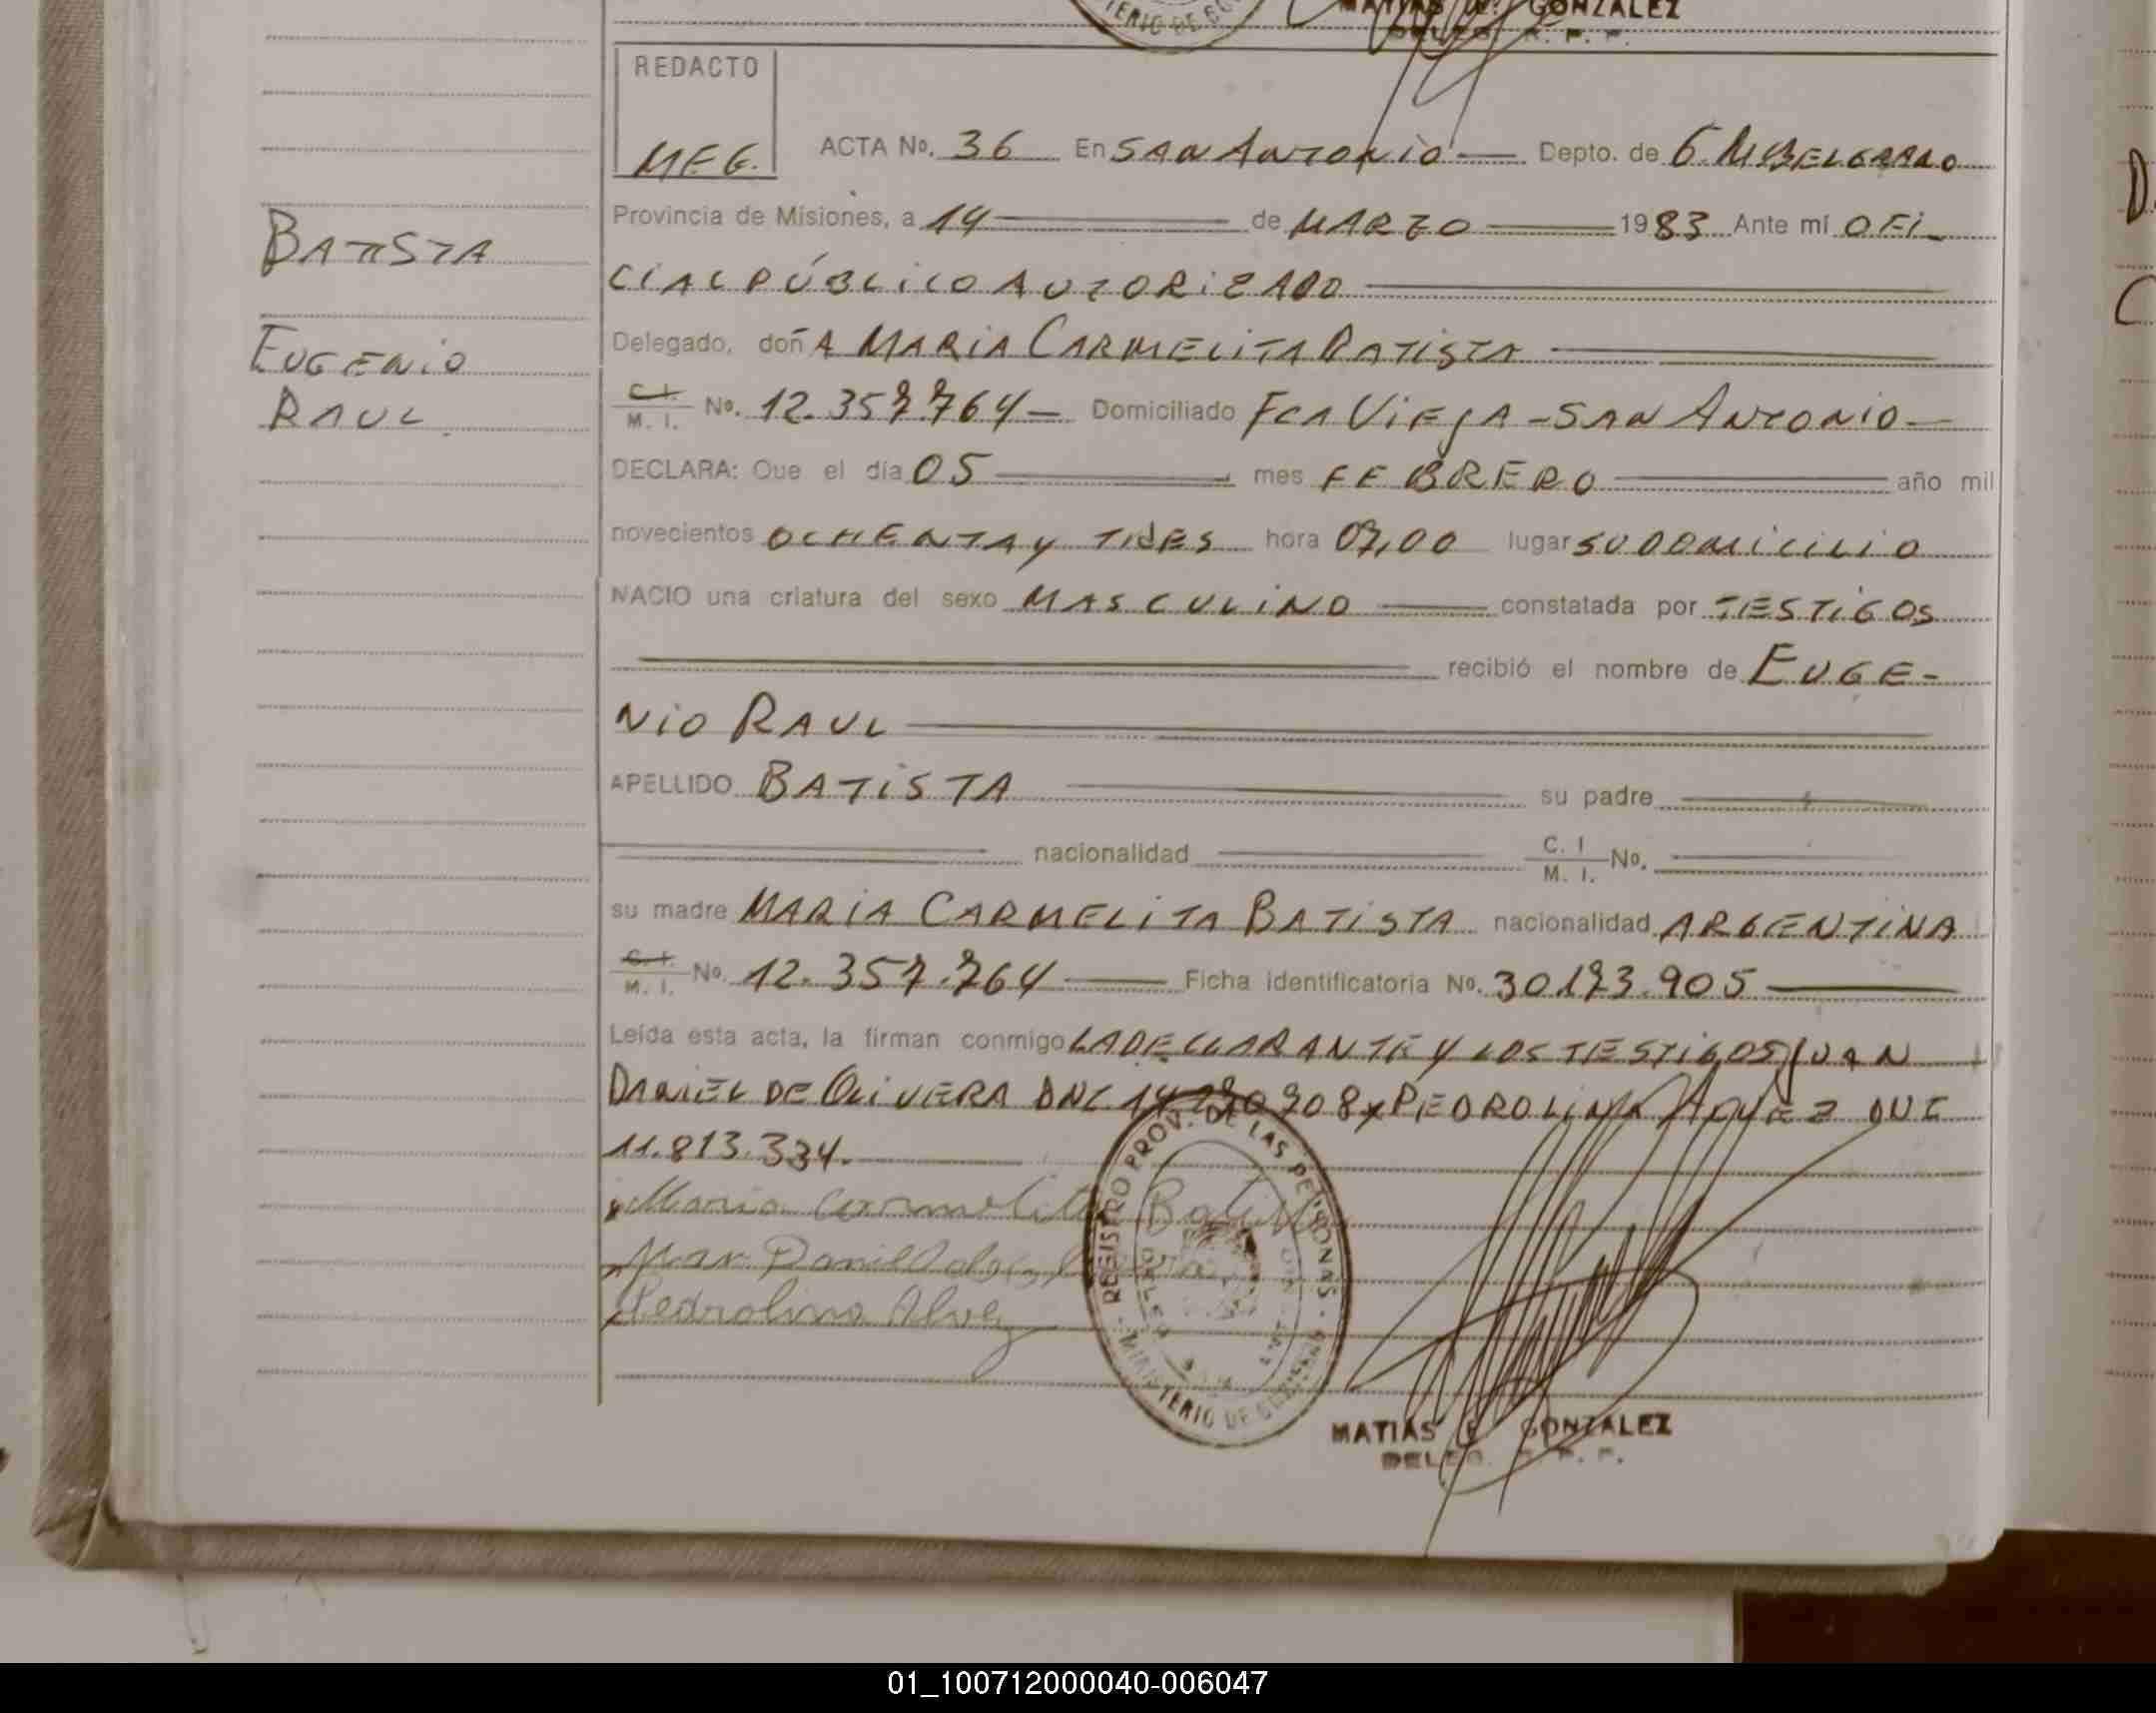 MATIAS E. GONZALEZ
DELEG. R. P. P.
REDACTO
MEG.
ACTA No. 36 En SAN ANTONIO Depto. de G. M. BELGRANO
Provincia de Misiones, a 14 de MARZO 1983 Ante mí OFI_
CIAL PÚBLICO AUTORIZADO
Delegado, doñA MARIA CARMELITA BATISTA
C.I. M. I. No. 12.357.764 Domiciliado FCA VIEJA - SAN ANTONIO
DECLARA: Que el día 05 mes FEBRERO año mil
novecientos OCHENTA y TRES hora 07,00 lugar SU DOMICILIO
NACIO una criatura del sexo MASCULINO constatada por TESTIGOS
recibió el nombre de EUGE-
NIO RAUL
APELLIDO BATISTA su padre
nacionalidad C. I M. I. No.
su madre MARIA CARMELITA BATISTA nacionalidad ARGENTINA
C.I. M. I. No. 12.357.764 Ficha identificatoria No. 30.173.905
Leída esta acta, la firman conmigo LA DECLARANTE Y LOS TESTIGOS JUAN
DANIEL DE OLIVERA DNI PEDROLINA DNI
11.813.334.
Maria Carmelita Batista
Pedrolina Alvez
REGISTRO PROV. DE LAS PERSONAS
MINISTERIO DE GOBIERNO
MATIAS E. GONZALEZ
DELEG. R. P. P.
BATISTA
EUGENIO
RAUL
01_100712000040-006047